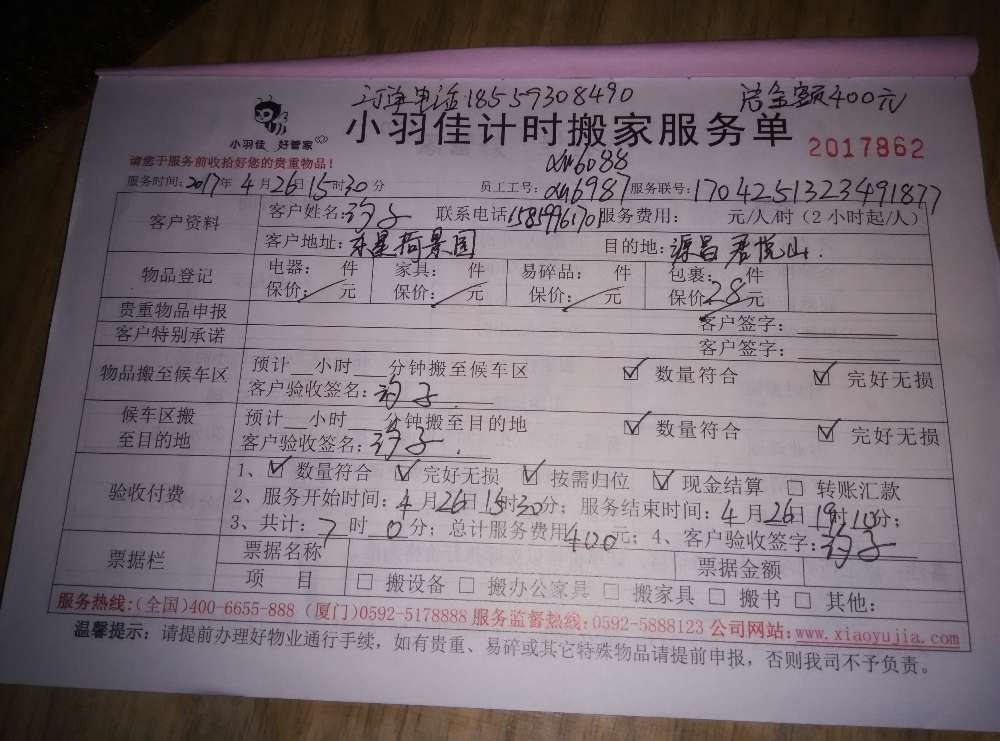 订单电话18559308490 总金额400元
小羽佳 好管家
小羽佳计时搬家服务单
2017862
请您于服务前收拾好您的贵重物品!
xm6088
服务时间:2017年4月26日15时30分 员工工号:xm6987 服务联号:1704251323491877
客户资料 客户姓名: 联系电话:15859961701 服务费用: 元/人/时(2小时起/人)
客户地址:东星荷景园 目的地:源昌君悦山.
物品登记 电器: 件 家具: 件 易碎品: 件 包裹: 件
保价: 元 保价: 元 保价: 元 保价28元
贵重物品申报 客户签字:
客户特别承诺 客户签字:
物品搬至候车区 预计__小时__分钟搬至候车区 ☑ 数量符合 ☑ 完好无损
客户验收签名:
候车区搬至目的地 预计__小时__分钟搬至目的地 ☑ 数量符合 ☑ 完好无损
客户验收签名:
验收付费 1、☑ 数量符合 ☑ 完好无损 ☑ 按需归位 ☑ 现金结算 □ 转账汇款
2、服务开始时间:4月26日15时30分;服务结束时间:4月26日19时10分;
3、共计:7时0分;总计服务费用400元;4、客户验收签字:
票据栏 票据名称 票据金额
项 目 □ 搬设备 □ 搬办公家具 □ 搬家具 □ 搬书 □ 其他:
服务热线:(全国)400-6655-888 (厦门)0592-5178888 服务监督热线:0592-5888123 公司网站:www.xiaoyujia.com
温馨提示:请提前办理好物业通行手续,如有贵重、易碎或其它特殊物品请提前申报,否则我司不予负责。